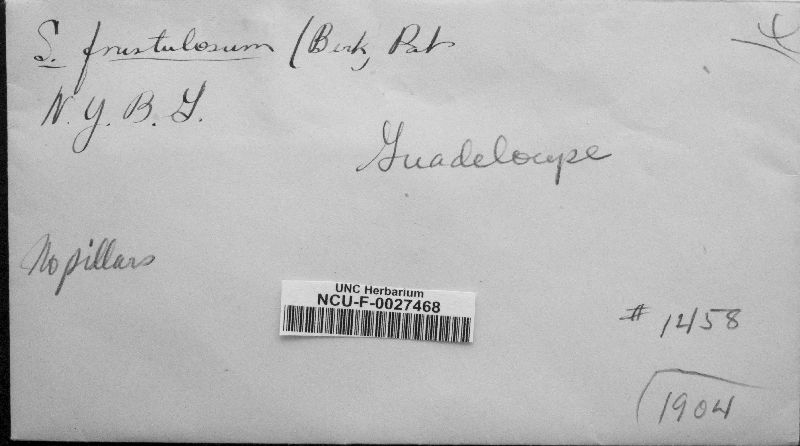 S. frustulosum (Berk, Pat
N. Y. B. G.
Guadeloupe
No pillars
UNC Herbarium
NCU-F-0027468
# 1458
1904